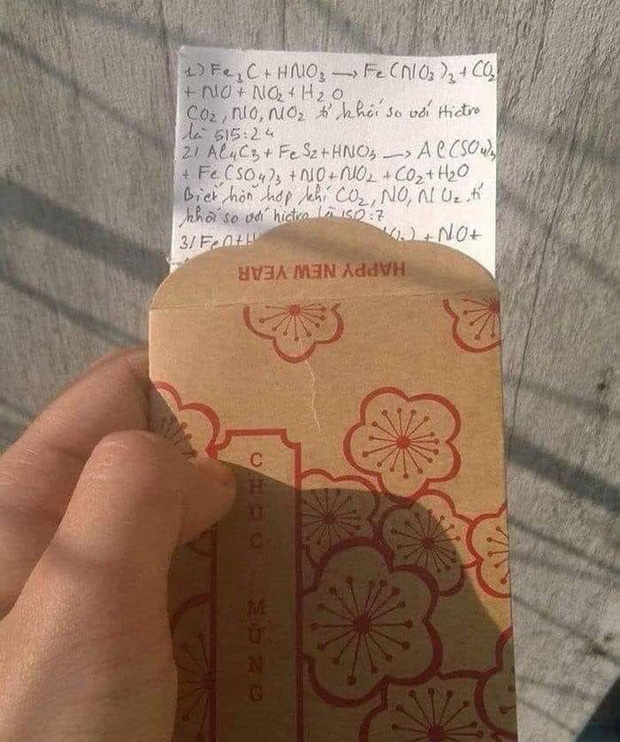 1) Fe3C + HNO3 → Fe(NO3)3 + CO2
+ NO + NO2 + H2O
CO2, NO, NO2 tỉ khối so với Hidro
là 515:24
2) Al4C3 + FeS2 + HNO3 → Al(SO4)3
+ Fe(SO4)3 + NO + NO2 + CO2 + H2O
Biết hỗn hợp khí CO2, NO, NO2 tỉ
khối so với hidro là 150:7
3) FeO + H ) + NO +
HAPPY NEW YEAR
CHÚC MỪNG